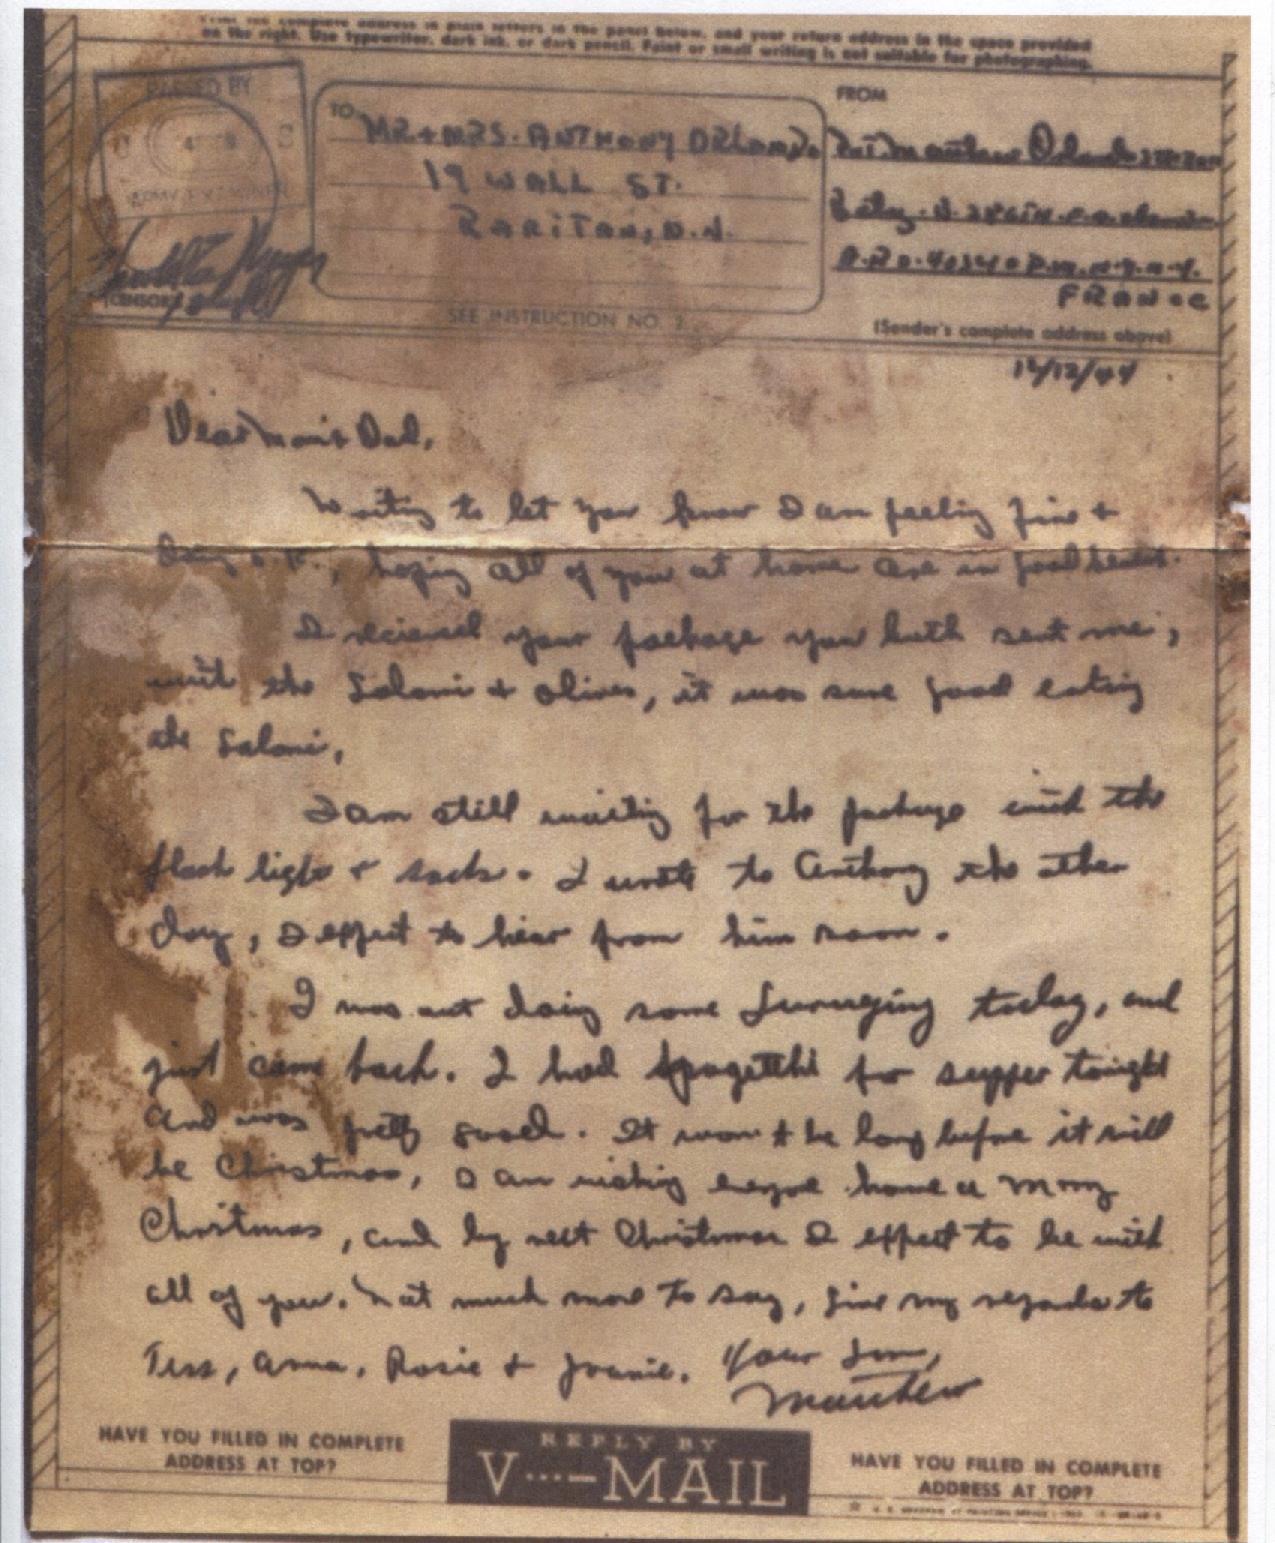 Print the complete address in plain letters in the panel below, and your return address in the space provided
on the right. Use typewriter, dark ink, or dark pencil. Faint or small writing is not suitable for photographing.
PASSED BY
U S
ARMY EXAMINER
(CENSOR'S
TO
MR + MRS. ANTHONY ORLANDO
19 WALL ST.
RARITAN, N.J.
SEE INSTRUCTION NO. 2
FROM
Pvt. Matthew Orlando
Btry.
A.P.O. P.M. N.Y. N.Y.
FRANCE
(Sender's complete address above)
12/12/44
Dear Mom & Dad,
Writing to let you know I am feeling fine +
doing O.K., hoping all of you at home are in good health.
I recieved your package you both sent me,
with the Salami + olives, it was sure good eating
the Salami,
I am still waiting for the package with the
flash light + socks. I wrote to Anthony the other
day, I expect to hear from him soon.
I was out doing some Surveying today, and
just came back. I had Spagetthi for supper tonight
and was pretty good. It won't be long before it will
be Christmas, I am wishing home a Merry
Christmas, and by next Christmas I expect to be with
all of you. Not much more to say, give my regards to
Tess, Anna, Rosie + Joanie. Your Son,
Matthew
HAVE YOU FILLED IN COMPLETE
ADDRESS AT TOP?
REPLY BY
V···—MAIL
HAVE YOU FILLED IN COMPLETE
ADDRESS AT TOP?